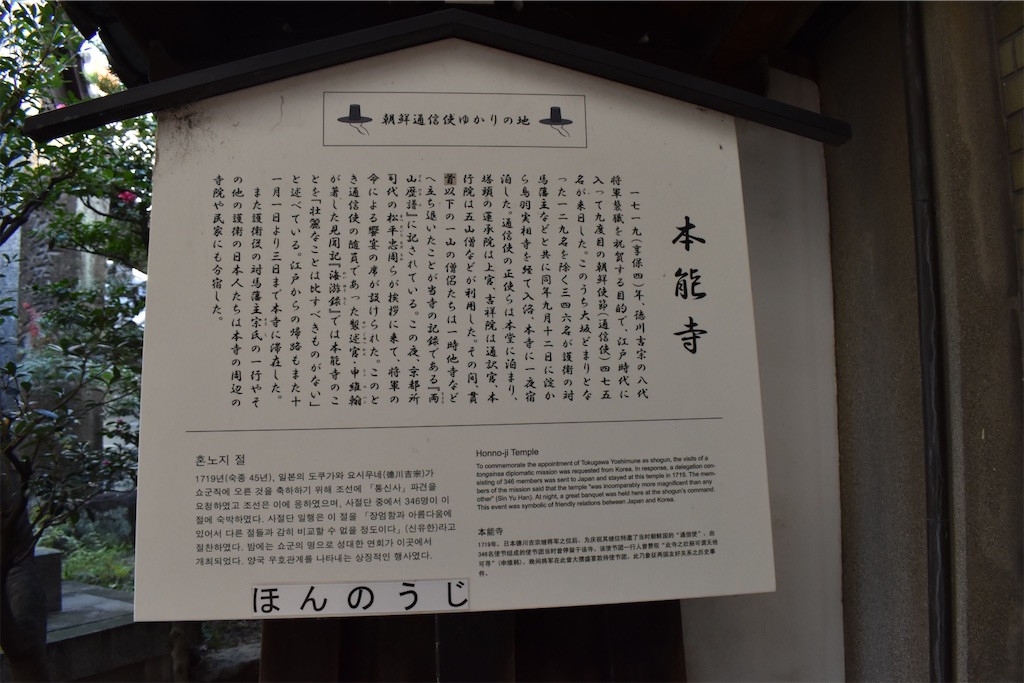 朝鮮通信使ゆかりの地
本能寺
一七一九(享保四)年、徳川吉宗の八代
将軍襲職を祝賀する目的で、江戸時代に
入って九度目の朝鮮使節(通信使)四七五
名が来日した。このうち大坂どまりとな
った一二九名を除く三四六名が護衛の対
馬藩主などと共に同年九月十二日に淀か
ら鳥羽実相寺を経て入洛、本寺に一夜宿
泊した。通信使の正使らは本堂に泊まり、
塔頭の蓮承院は上官、吉祥院は通訳官、本
行院は五山僧などが利用した。その間、貫
首以下の一山の僧侶たちは一時他寺など
へ立ち退いたことが当寺の記録である『両
山歴譜』に記されている。この夜、京都所
司代の松平忠周らが挨拶に来て、将軍の
命による饗宴の席が設けられた。このと
き通信使の随員であった製述官・申維翰
が著した見聞記『海游録』では本能寺のこ
とを「壮麗なことは比すべきものがない」
と述べている。江戸からの帰路もまた十
一月一日より三日まで本寺に滞在した。
また護衛役の対馬藩主宗氏の一行やそ
の他の護衛の日本人たちは本寺の周辺の
寺院や民家にも分宿した。
혼노지 절
1719년(숙종 45년), 일본의 도쿠가와 요시무네(德川吉宗)가
쇼군직에 오른 것을 축하하기 위해 조선에 「통신사」파견을
요청하였고 조선은 이에 응하였으며, 사절단 중에서 346명이 이
절에 숙박하였다. 사절단 일행은 이 절을 「장엄함과 아름다움에
있어서 다른 절들과 감히 비교할 수 없을 정도이다」(신유한)라고
절찬하였다. 밤에는 쇼군의 명으로 성대한 연회가 이곳에서
개최되었다. 양국 우호관계를 나타내는 상징적인 행사였다.
Honno-ji Temple
To commemorate the appointment of Tokugawa Yoshimune as shogun, the visits of a
tongsinsa diplomatic mission was requested from Korea. In response, a delegation con-
sisting of 346 members was sent to Japan and stayed at this temple in 1719. The mem-
bers of the mission said that the temple "was incomparably more magnificent than any
other" (Sin Yu Han). At night, a great banquet was held here at the shogun's command.
This event was symbolic of friendly relations between Japan and Korea.
本能寺
1719年，日本德川吉宗继将军之位后，为庆祝其继位特遣了当时朝鲜国的"通信使"，由
346名使节组成的使节团当时曾停留于该寺。该使节团一行人曾赞叹"此寺之壮丽可谓无他
可寻"（申维翰）。晚间将军在此曾大摆盛宴款待使节团，此乃象征两国友好关系之历史事
件。
ほんのうじ